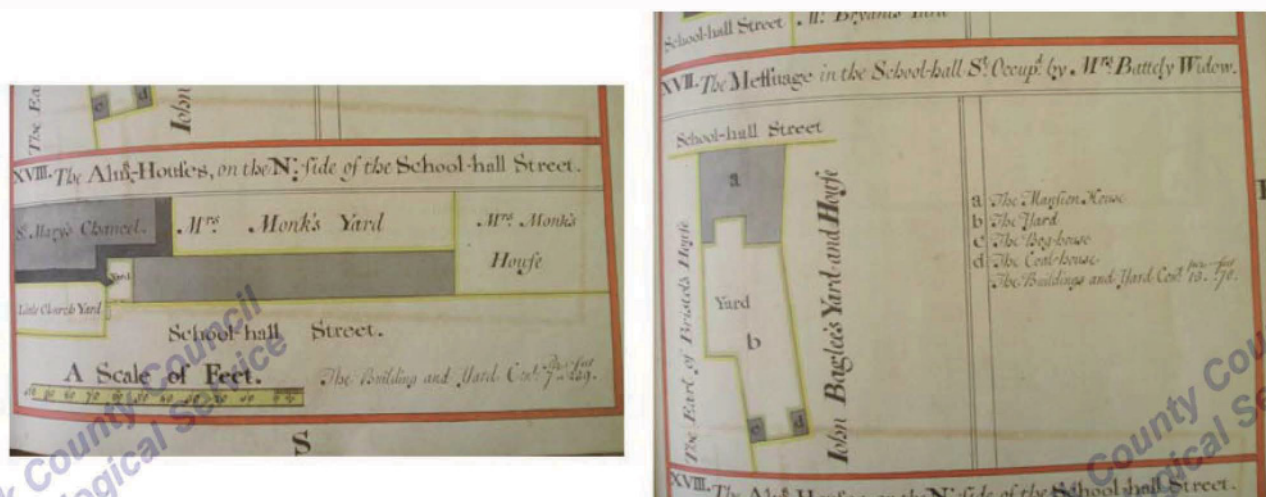 The Ea
c
d
John
XVIII. The Alms-Houses, on the N: side of the School-hall Street.
St. Mary's Chancel.
Mrs. Monk's Yard
Mrs. Monk's
House
Yard
Little Church Yard
School-hall Street.
A Scale of Feet.
The Building and Yard Cont.
S
County Council
logical Service
School-hall Street
Mr. Bryant's Yard
XVII. The Messuage in the School-hall St. Occup.d by Mrs. Battely Widow.
School-hall Street
a
The Earl of Bristol's House
Yard
b
c
d
John Baglee's Yard and House
a The Mansion House
b The Yard
c The Bog-house
d The Coal-house
The Buildings and Yard Cont. 13. 70.
County Cou
gical Se
XVIII. The Alms-Houses, on the N: side of the School-hall Street.